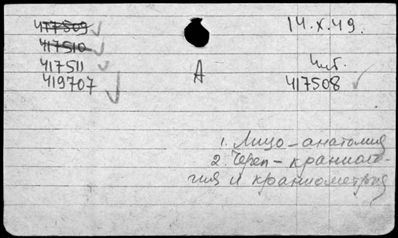 417509
417510
417511
419707
А
14.X.49.
417508
1. Лицо-анатомия
2. Череп-краниоло-
гия и краниометрия